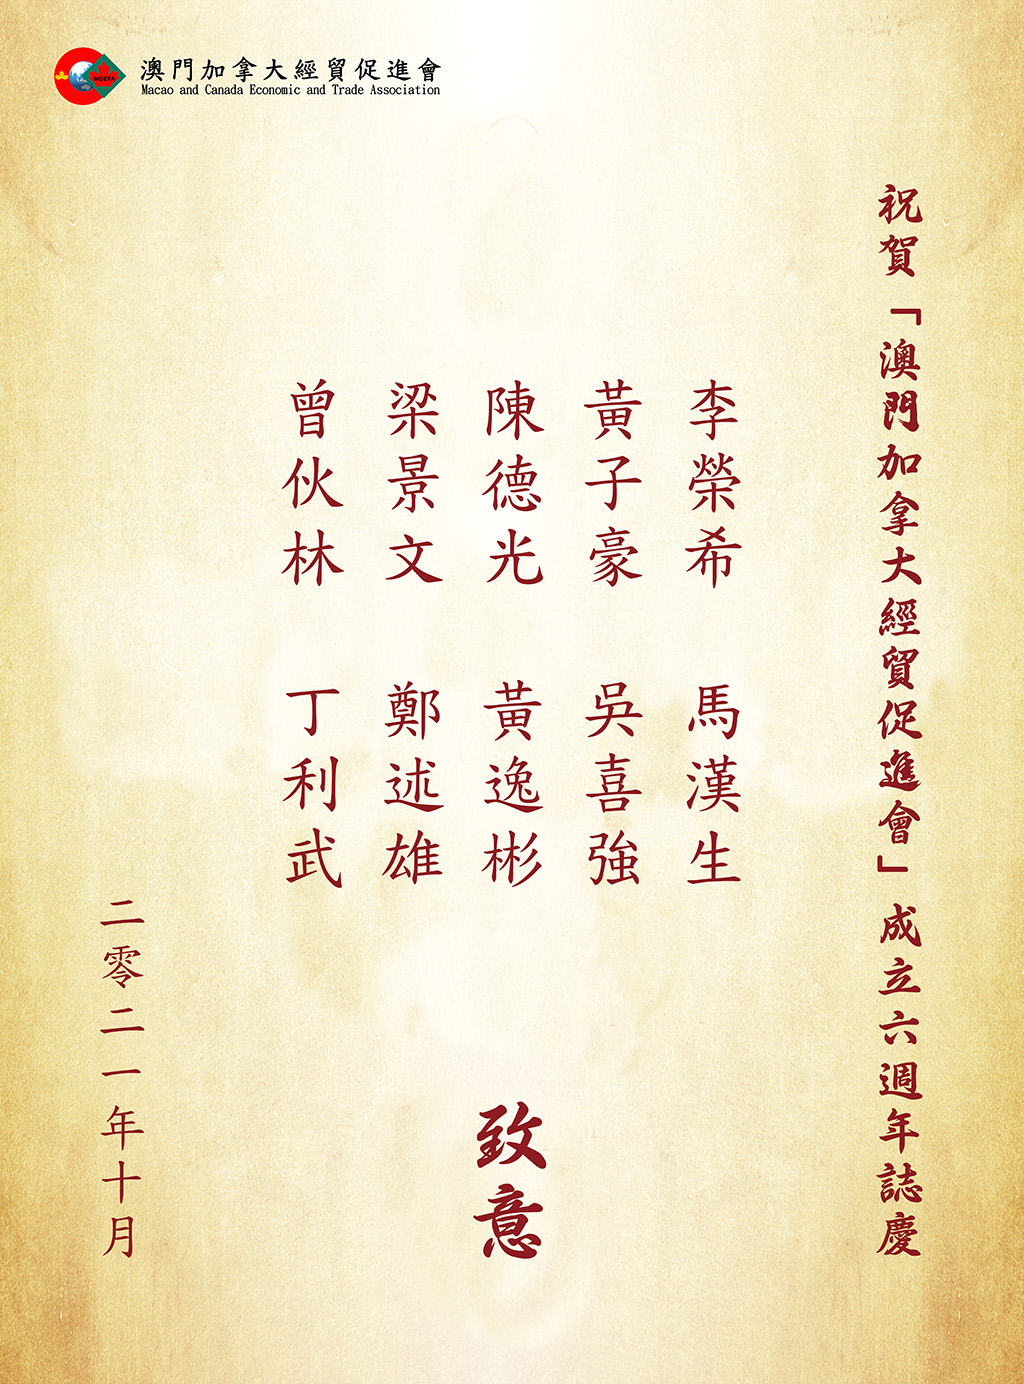 澳門加拿大經貿促進會
Macao and Canada Economic and Trade Association
MCETA
祝賀「澳門加拿大經貿促進會」成立六週年誌慶
李榮希 馬漢生
黃子豪 吳喜強
陳德光 黃逸彬
梁景文 鄭述雄
曾伙林 丁利武
致意
二零二一年十月